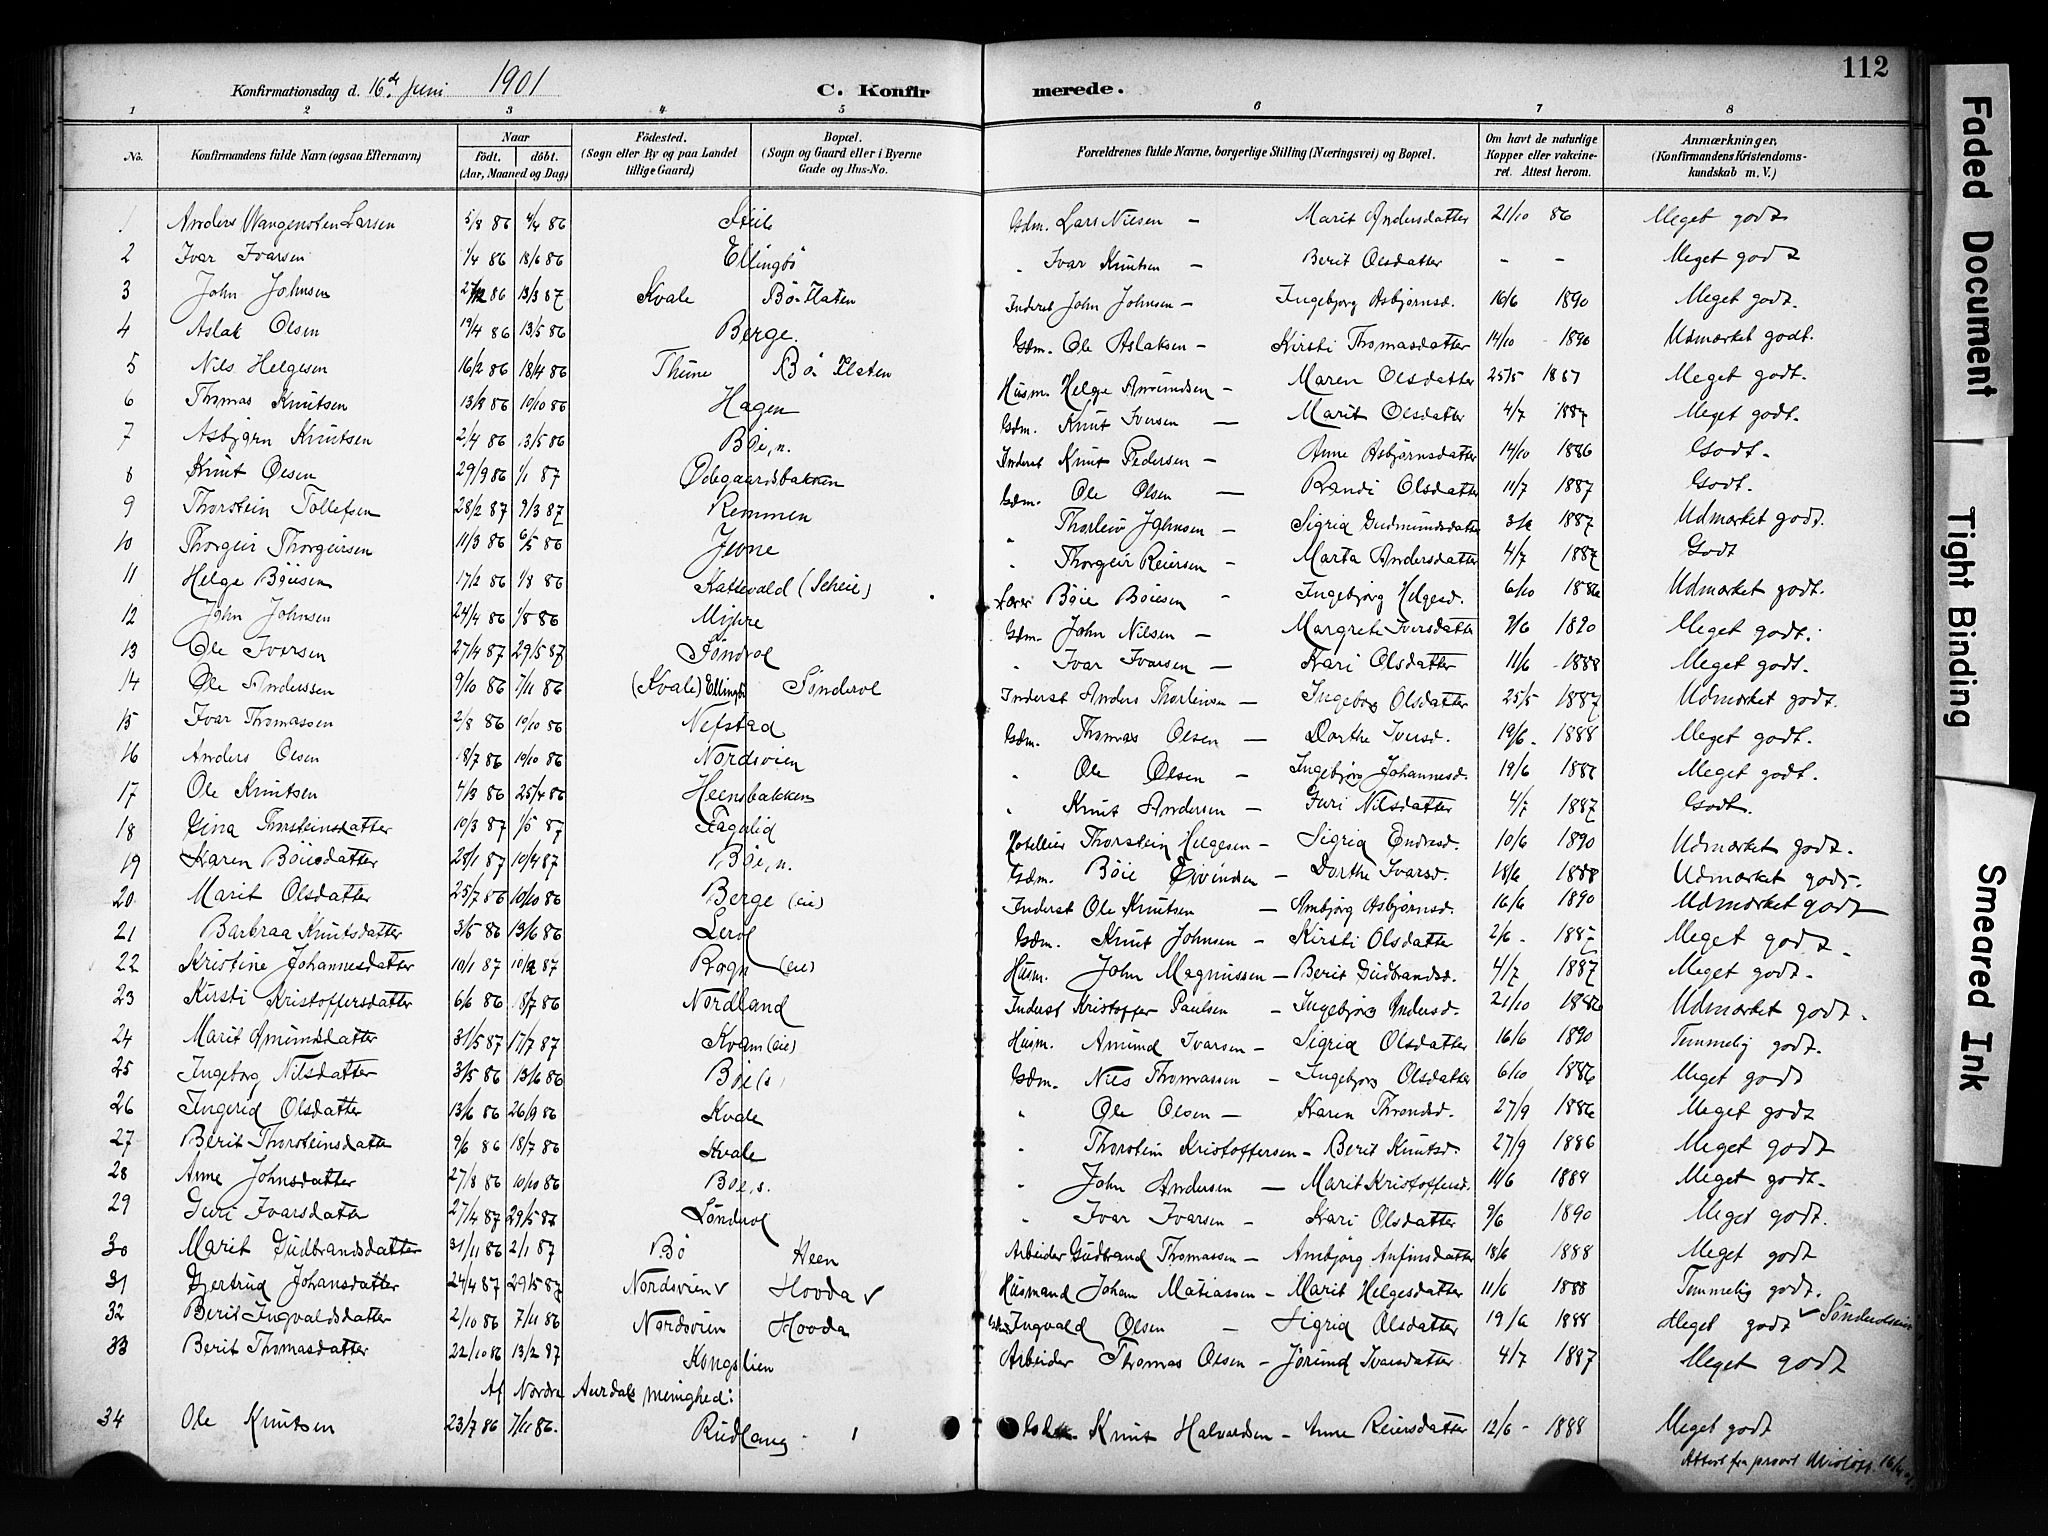 112
Konfirmationsdag d. 16de Juni 1901 C. Konfirmerede.
1 2 3 4 5 6 7 8
No. Konfirmandens fulde Navn (ogsaa Efternavn) Naar födt. döbt. (Aar, Maaned og Dag) Födested. (Sogn eller By og paa Landet tillige Gaard) Bopæl. (Sogn og Gaard eller i Byerne Gade og Hus-No. Forældrenes fulde Navne, borgerlige Stilling (Næringsvei) og Bopæl. Om havt de naturlige Kopper eller vakcineret. Attest herom. Anmærkninger, (Konfirmandens Kristendomskundskab m. V.)
1 Anders Wangensten Larsen 5/3 86 4/4 86 Gdm. Lars Nilsen - Marit Andersdatter 21/10 86 Meget godt
2 Ivar Ivarsen 1/4 86 18/6 86 Ellingbö " Ivar Knutsen - Berit Olsdatter - - Meget godt
3 John Johnsen 27/12 86 13/3 87 Kvale Bö Inderst John Johnsen - Ingebjorg Asbjørnsd. 16/6 1890 Meget godt.
4 Aslak Olsen 19/4 86 13/5 86 Berge. Gdm. Ole Aslaksen - Kirsti Thomasdatter 14/10 1890 Udmærket godt.
5 Nils Helgesen 16/2 86 18/4 86 Thune Bö Husm. Helge Amundsen - Maren Olsdatter 25/5 1887 Meget godt.
6 Thomas Knutsen 13/8 86 10/10 86 Hagen Gdm. Knut Iversen - Marit Olsdatter 4/7 1887 Meget godt.
7 Asbjørn Knutsen 2/4 86 13/5 86 Böe, n. Inderst Knut Pedersen - Anne Asbjørnsdatter 14/10 1886 Godt.
8 Knut Olsen 29/9 86 1/1 87 Ødegaardsbakken Gdm. Ole Olsen - Randi Olsdatter 11/7 1887 Godt.
9 Thorstein Tollefsen 28/2 87 9/3 87 Remmen " Thorleiv Johnsen - Sigrid Gudmundsdatter 1887 Udmærket godt.
10 Thorgeir Thorgeirsen 11/3 86 6/5 86 Jevne " Thorgeir Reiersen - Marta Andersdatter 4/7 1887 Godt
11 Helge Böiesen 17/2 86 1/8 86 Kattevold (Scheie) Lærer Böie Böiesen - Ingebjörg Helgesd. 6/10 1886 Udmærket godt.
12 John Johnsen 24/4 86 1/8 86 Gdm. John Nilsen - Margrete Iversdatter 9/6 1890 Meget godt.
13 Ole Iversen 27/4 87 29/5 87 Sönderol " Ivar Ivarsen - Kari Olsdatter 11/6 1888 Meget godt.
14 Ole Anderssen 9/10 86 7/11 86 (Kvale) Ellingb. Sönderol Inderst Anders Thorleivsen - Ingeborg Olsdatter 25/5 1887 Udmærket godt.
15 Ivar Thomassen 2/8 86 10/10 86 Nefstad Gdm. Thomas Olsen - Dorthe Iversd. 19/6 1888 Meget godt.
16 Anders Olsen 18/7 86 10/10 86 Nordsvien " Ole Olsen - Ingebjörg Johannesd. 19/6 1886 Meget godt.
17 Ole Knutsen 4/3 86 25/4 86 Heensbakken " Knut Andersen - Guri Nilsdatter 4/7 1887 Godt.
18 Gina Thorsteinsdatter 10/3 87 1/5 87 Fagerlid Hotellier Thorstein Helgesen - Sigrid Endresd. 10/6 1890 Udmærket godt.
19 Karen Böiesdatter 28/1 87 10/4 87 Böe, n. Gdm. Böie Eivindsen - Dorthe Ivarsd. 18/6 1888 Udmærket godt.
20 Marit Olsdatter 25/7 86 10/10 86 Berge (eie) Inderst Ole Knutsen - Ambjörg Asbjørnsd. 16/6 1890 Udmærket godt
21 Barbraa Knutsdatter 3/5 86 13/6 86 Lerol Gdm. Knut Johnsen - Kirsti Olsdatter 2/6 - 1887 Meget godt.
22 Kristine Johannesdatter 10/1 87 10/2 87 Rogn (eie) Husm. John Magnussen - Berit Gudbrandsd. 4/7 1887 Meget godt.
23 Kirsti Kristoffersdatter 6/6 86 18/7 86 Nordland Inderst Kristoffer Paulsen - Ingebjörg Andersd. 21/10 1886 Udmærket godt.
24 Marit Amundsdatter 31/5 87 17/7 87 Kvam (eie) Husm. Amund Ivarsen - Sigrid Olsdatter 16/6 1890 Temmelig godt.
25 Ingeborg Nilsdatter 3/5 86 13/6 86 Böe (s) Gdm. Nils Thomassen - Ingebjörg Olsdatter 6/10 1886 Meget godt
26 Ingerid Olsdatter 13/6 86 26/9 86 Kvale " Ole Olsen - Karen Throndsd. 27/9 1886 Meget godt
27 Berit Thorsteinsdatter 9/6 86 18/7 86 Kvale " Thorstein Kristoffersen - Berit Knutsd. 27/9 1886 Meget godt
28 Anne Johnsdatter 27/8 86 10/10 86 Böe, s. " John Andersen - Marit Kristoffersd. 11/6 1888 Meget godt.
29 Guri Ivarsdatter 27/4 87 29/5 87 Sönderol " Ivar Ivarsen - Kari Olsdatter 9/6 1890 Meget godt.
30 Marit Gudbrandsdatter 31/11 86 2/1 87 Bö Heen Arbeider Gudbrand Thomassen - Ambjörg Anfinsdatter 18/6 1888 Meget godt
31 Gjertrud Johansdatter 24/4 87 29/5 87 Nordsvien v Hovda v Husmand Johan Matiassen - Marit Helgesdatter 11/6 1888 Temmelig godt.
32 Berit Ingvaldsdatter 2/10 86 7/11 86 Nordsvien Hovda Ingvald Olsen - Sigrid Olsdatter 19/6 1888 Meget godt
33 Berit Thomasdatter 22/10 86 13/2 87 Kongslien Arbeider Thomas Olsen - Jörund Ivarsdatter 4/7 1887 Meget godt
Af Nordre Aurdals menighed:
34 Ole Knutsen 23/7 86 7/11 86. Rudlang Knut Halvardsen - Anne Reiersdatter 12/6 - 1888 Meget godt
Attest fra provst 16/4 01
Faded Document
Tight Binding
Smeared Ink